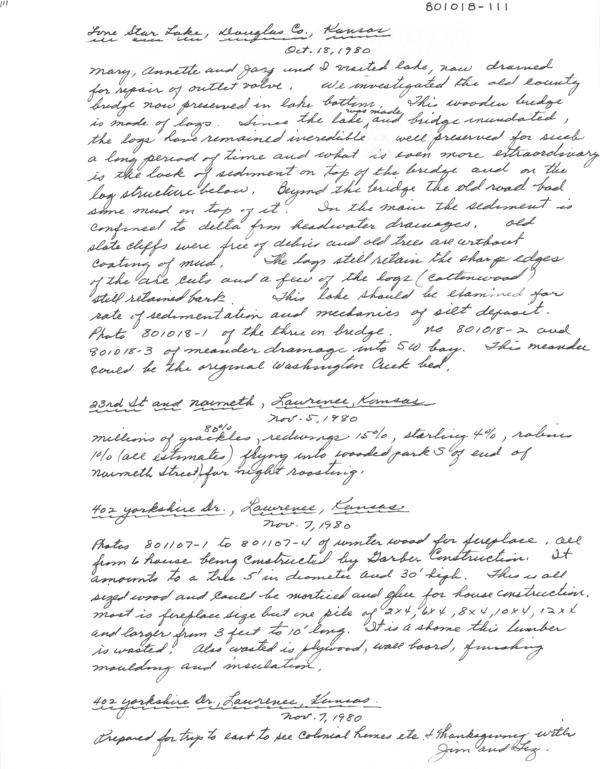 801018-111
111
Lone Star Lake, Douglas Co., Kansas
Oct. 18, 1980
Mary, Annette and Jary and I visited lake, now drained
for repair of outlet valve. We investigated the old county
bridge now preserved in lake bottom. This wooden bridge
is made of logs. Since the lake was made, and bridge inundated,
the logs have remained incredible well preserved for such
a long period of time and what is even more extraordinary
is the lack of sediment on top of the bridge and on the
log structure below. Beyond the bridge the old road had
some mud on top of it. In the main the sediment is
confined to delta from headwater drainages. Old
slate cliffs were free of debris and old trees are without
coating of mud. The logs still retain the sharp edges
of the axe cuts and a few of the logs (cottonwood)
still retained bark. This lake should be examined for
rate of sedimentation and mechanics of silt deposit.
Photo 801018-1 of the three on bridge. No 801018-2 and
801018-3 of meander drainage into SW bay. This meander
could be the original Washington Creek bed.
23rd St and Naismith, Lawrence, Kansas
Nov. 5, 1980
Millions of grackles 80%, redwings 15%, starling 4%, robins
1% (all estimates) flying into wooded park S of end of
Naismith Street) for night roosting.
402 Yorkshire Dr., Lawrence, Kansas
Nov. 7, 1980
Photos 801107-1 to 801107-4 of winter wood for fireplace, all
from 6 house being constructed by Garber Construction. It
amounts to a tree 5' in diameter and 30' high. This is all
sized wood and could be morticed and glue for house construction.
Most is fireplace size but one pile of 2x4, 6x4, 8x4, 10x4, 12x4
and larger from 3 feet to 10' long. It is a shame this lumber
is wasted. Also wasted is plywood, wall board, finishing
moulding and insulation.
402 Yorkshire Dr., Lawrence, Kansas.
Nov. 7, 1980
Prepared for trip to east to see Colonial homes etc + Thanksgiving with
Jim and Liz.